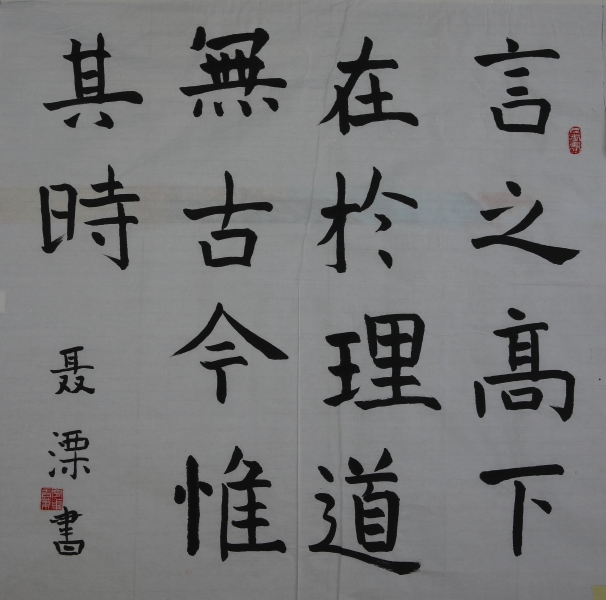 言之髙下
在於理道
無古今惟
其時
聂溧書